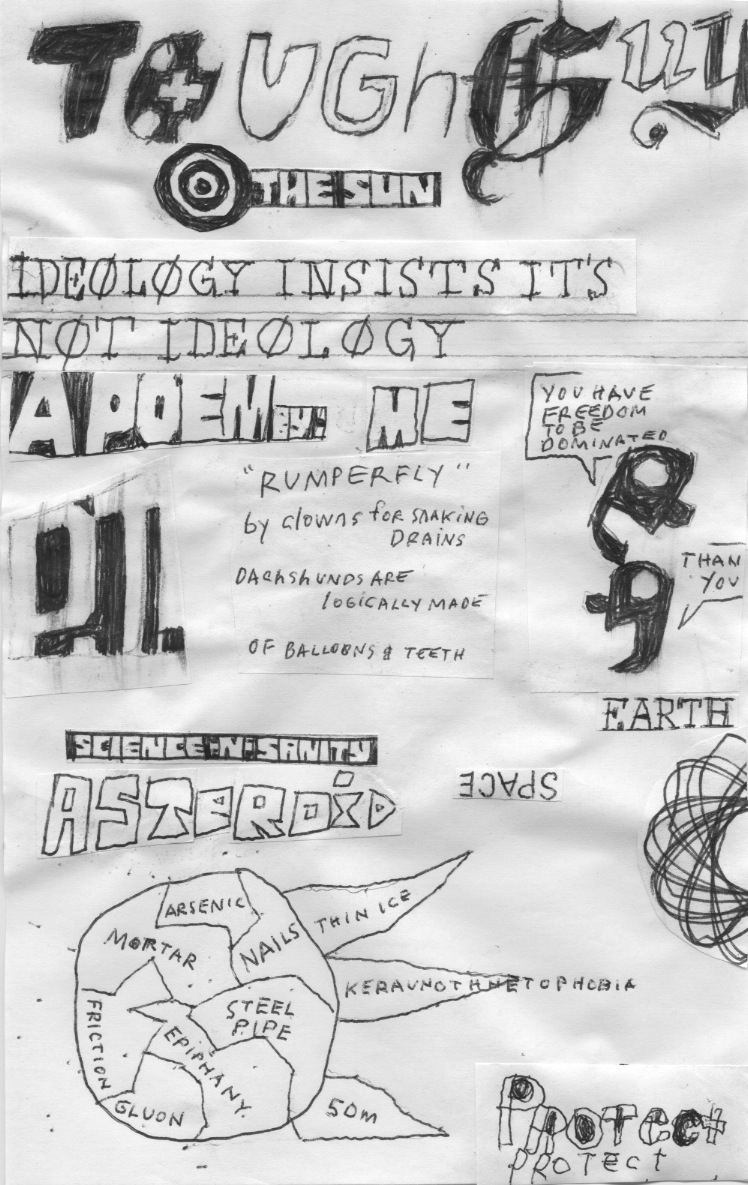 TOUGh Guy
THE SUN
IDEØLØGY INSISTS IT'S
NØT IDEØLØGY
A POEM BY: ME
YOU HAVE
FREEDOM
TO BE
DOMINATED
"RUMPERFLY"
by clowns for SNAKING
DRAINS
DAchshunds ARE
logically MADE
OF BALLOONS & TEETH
THAN
YOU
EARTH
SCIENCE·N·SANITY
ASTEROID
SPACE
ARSENIC
MORTAR
NAILS
THIN ICE
KERAUNOTHNETOPHOBIA
STEEL
PIPE
FRICTION
EPIPHANY
GLUON
50m
PROTect
PROTECT